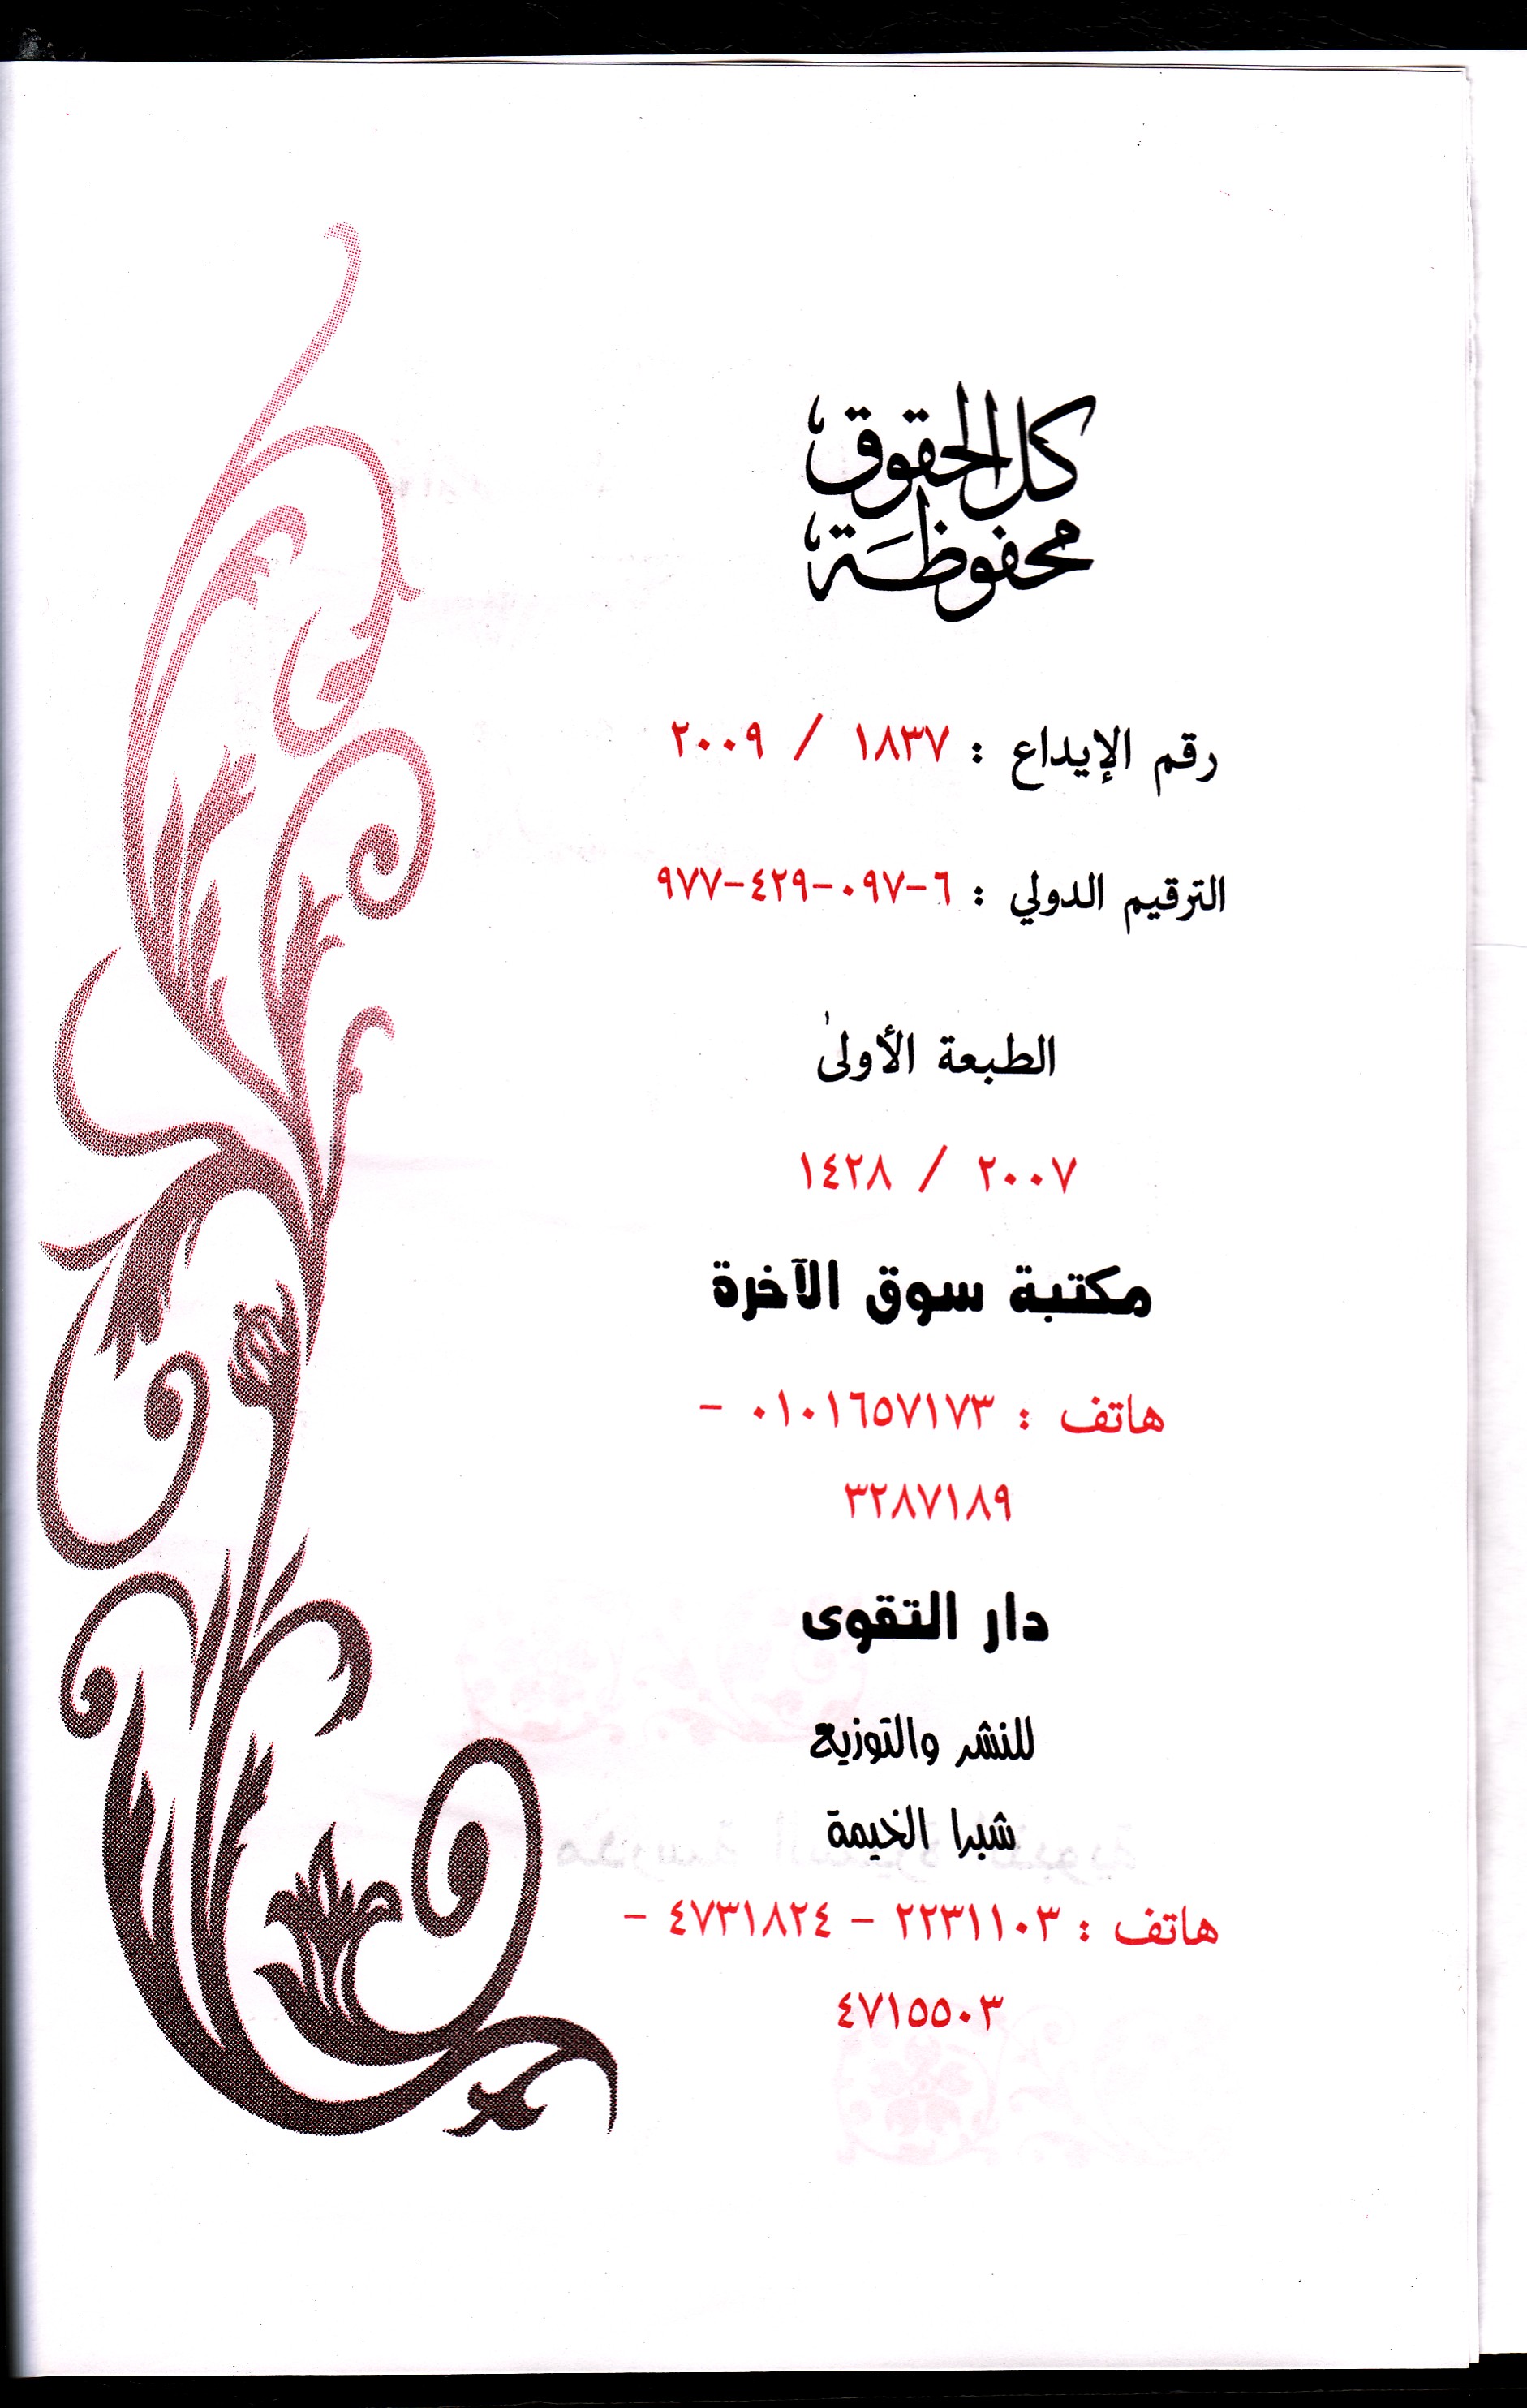 كل الحقوق
محفوظة
رقم الإيداع : ١٨٣٧ / ٢٠٠٩
الترقيم الدولي : ٦-٠٩٧-٤٢٩-٩٧٧
الطبعة الأولىٰ
٢٠٠٧ / ١٤٢٨
مكتبة سوق الآخرة
هاتف : ٠١٠١٦٥٧١٧٣ -
٣٢٨٧١٨٩
دار التقوى
للنشر والتوزيع
شبرا الخيمة
هاتف : ٢٢٣١١٠٣ - ٤٧٣١٨٢٤ -
٤٧١٥٥٠٣